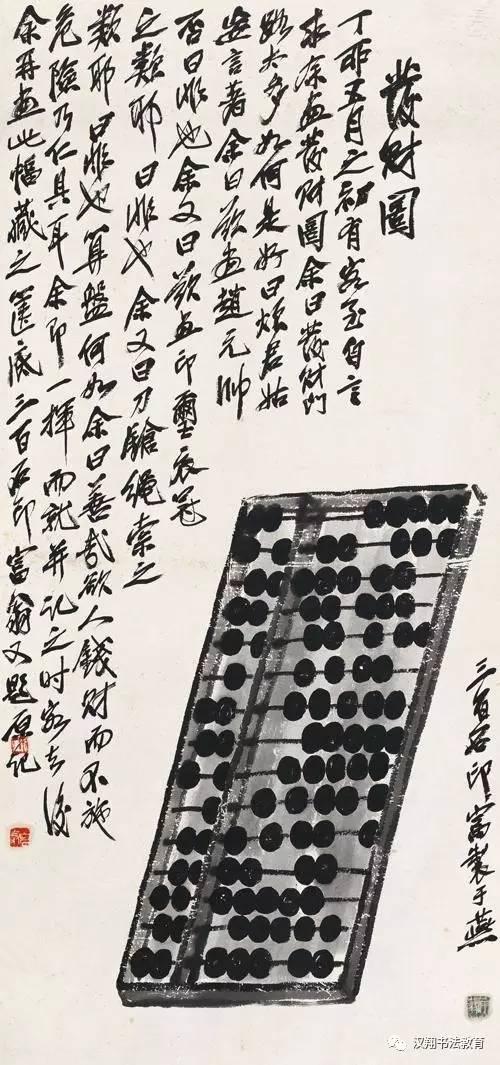 發財圖
丁卯五月之初有客至自言
求余畫發財圖余曰發財門
路太多如何是好曰煩君姑
妄言著余曰欲畫趙元帥
否曰非也余又曰欲畫印璽衣冠
之類耶曰非也余又曰刀鎗繩索之
類耶曰非也算盤何如余曰善哉欲人錢財而不施
危險乃仁具耳余即一揮而就并記之時客去後
余再畫此幅藏之篋底三百石印富翁又題原記
三百石印富製于燕
汉翔书法教育